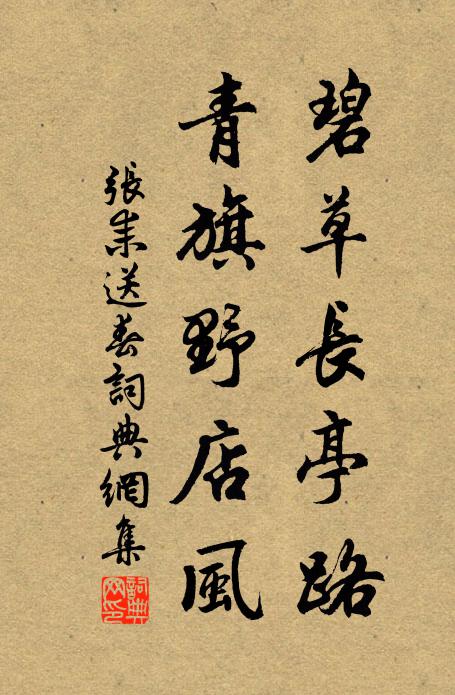 碧草長亭路
青旗野店風
張耒送春詞典網集
詞典網印